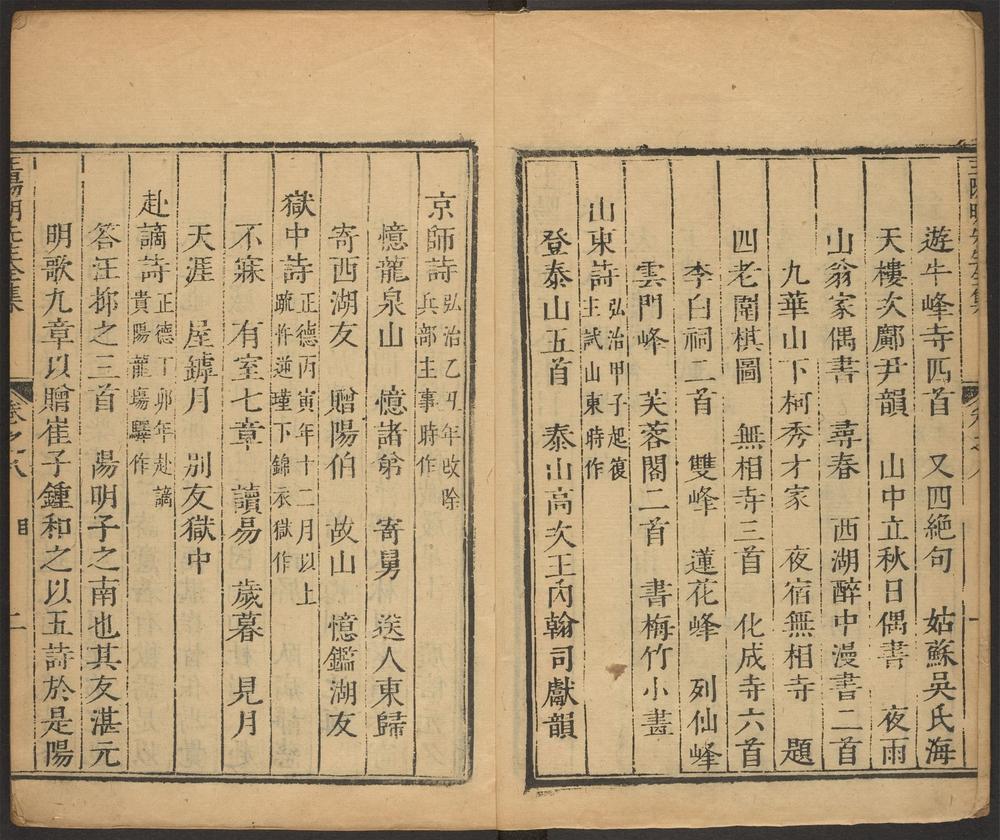 遊牛峰寺四首　又四絕句　姑蘇吳氏海
天樓次鄺尹韻　山中立秋日偶書　夜雨
山翁家偶書　尋春　西湖醉中漫書二首
九華山下柯秀才家　夜宿無相寺　題
四老圍棋圖　無相寺三首　化成寺六首
李白祠二首　雙峰　蓮花峰　列仙峰
雲門峰　芙蓉閣二首　書梅竹小畫
山東詩弘治甲子起復
主試山東時作
登泰山五首　泰山高次王內翰司獻韻
京師詩弘治乙丑年改除
兵部主事時作
憶龍泉山　憶諸弟　寄舅　送人東歸
寄西湖友　贈陽伯　故山　憶鑑湖友
獄中詩正德丙寅年十二月以上
疏忤逆瑾下錦衣獄作
不寐　有室七章　讀易　歲暮　見月
天涯　屋罅月　別友獄中
赴謫詩正德丁卯年赴謫
貴陽龍場驛作
答汪抑之三首　陽明子之南也其友湛元
明歌九章以贈崔子鍾和之以五詩於是陽
王陽明先生全集
卷之八
目
二